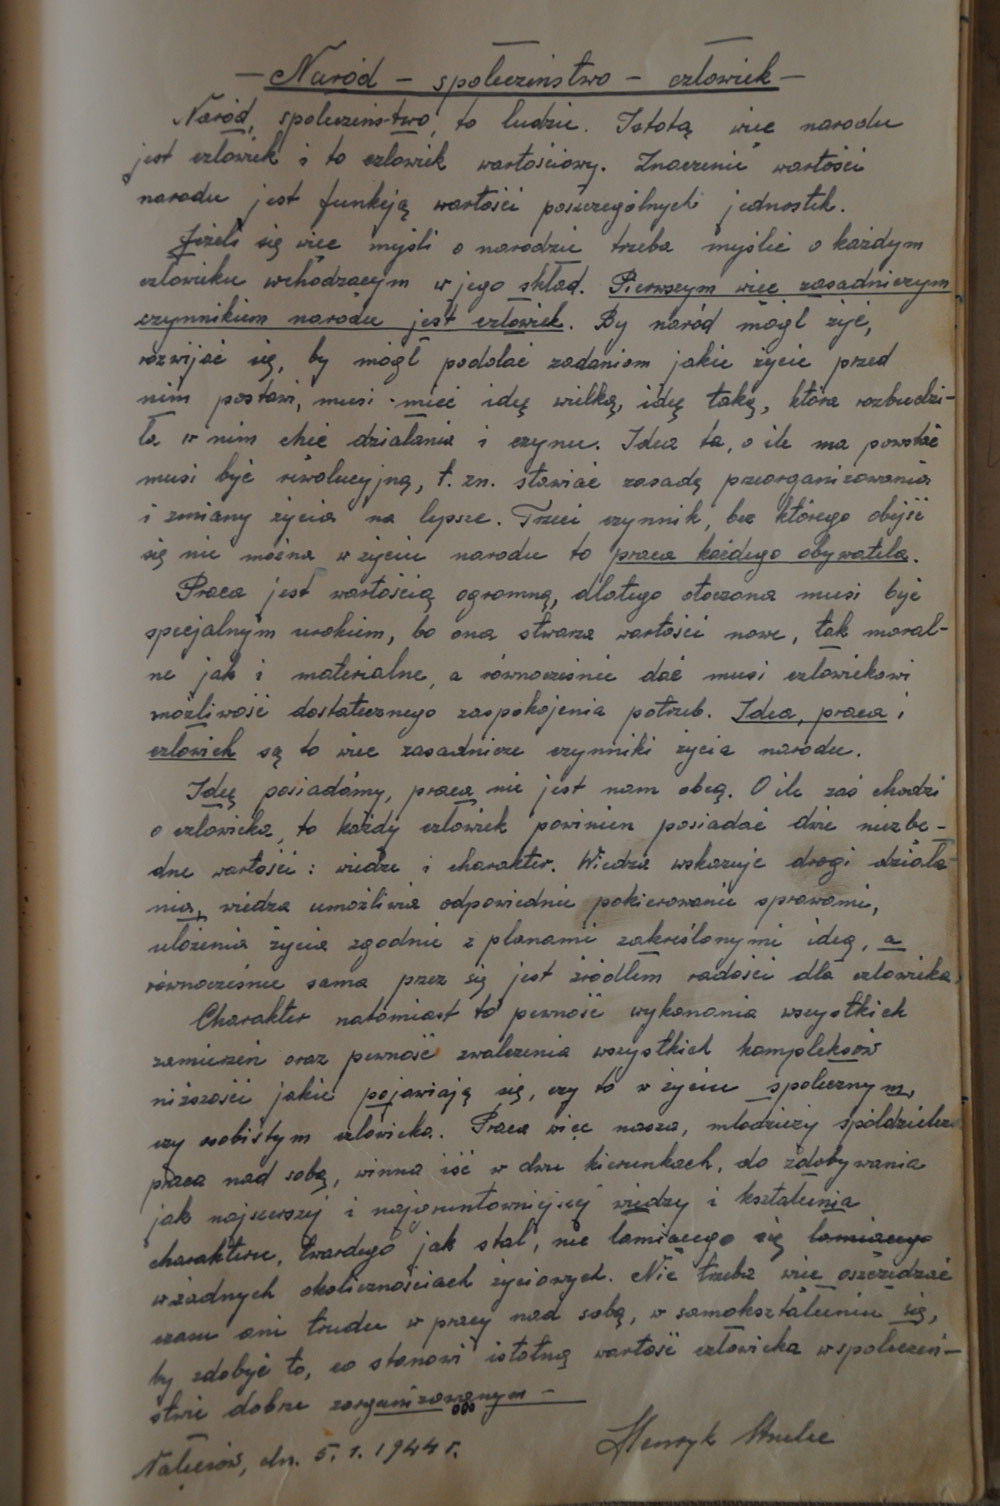 — Naród — społeczeństwo — człowiek —
Naród, społeczeństwo, to ludzie. Istotą więc narodu
jest człowiek i to człowiek wartościowy. Znaczenie wartości
narodu jest funkcją wartości poszczególnych jednostek.
Jeżeli się więc myśli o narodzie trzeba myśleć o każdym
człowieku wchodzącym w jego skład. Pierwszym więc zasadniczym
czynnikiem narodu jest człowiek. By naród mógł żyć,
rozwijać się, by mógł podołać zadaniom jakie życie przed
nim postawi, musi mieć ideę wielką, ideę taką, która rozbudzi-
ła w nim chęć działania i czynu. Idea ta, o ile ma powstać
musi być rewolucyjną, t. zn. stawiać zasadę przeorganizowania
i zmiany życia na lepsze. Trzeci czynnik, bez którego obejść
się nie można w życiu narodu to praca każdego obywatela.
Praca jest wartością ogromną, dlatego otoczona musi być
specjalnym urokiem, bo ona stwarza wartości nowe, tak moral-
ne jak i materialne, a równocześnie dać musi człowiekowi
możliwość dostatecznego zaspokojenia potrzeb. Idea, praca i
człowiek są to więc zasadnicze czynniki życia narodu.
Ideę posiadamy, praca nie jest nam obcą. O ile zaś chodzi
o człowieka, to każdy człowiek powinien posiadać dwie niezbę-
dne wartości: wiedzę i charakter. Wiedza wskazuje drogi działa-
nia, wiedza umożliwia odpowiednie pokierowanie sprawami,
ułożenia życia zgodnie z planami zakreślonymi ideą, a
równocześnie sama przez się jest źródłem radości dla człowieka.
Charakter natomiast to pewność wykonania wszystkich
zamierzeń oraz pewność zwalczenia wszystkich kompleksów
niższości jakie pojawiają się, czy to w życiu społecznym,
czy osobistym człowieka. Praca więc nasza, młodzieży spółdzielczej
praca nad sobą, winna iść w dwu kierunkach, do zdobywania
jak najszerszej i najgruntowniejszej wiedzy i kształcenia
charakteru, twardego jak stal, nie łamiącego się łamiącego
w żadnych okolicznościach życiowych. Nie trzeba więc oszczędzać
czasu ani trudu w pracy nad sobą, w samokształceniu się,
by zdobyć to, co stanowi istotną wartość człowieka w społeczeń-
stwie dobrze zorganizowanym —
dn. 5. 1. 1944 r. Henryk